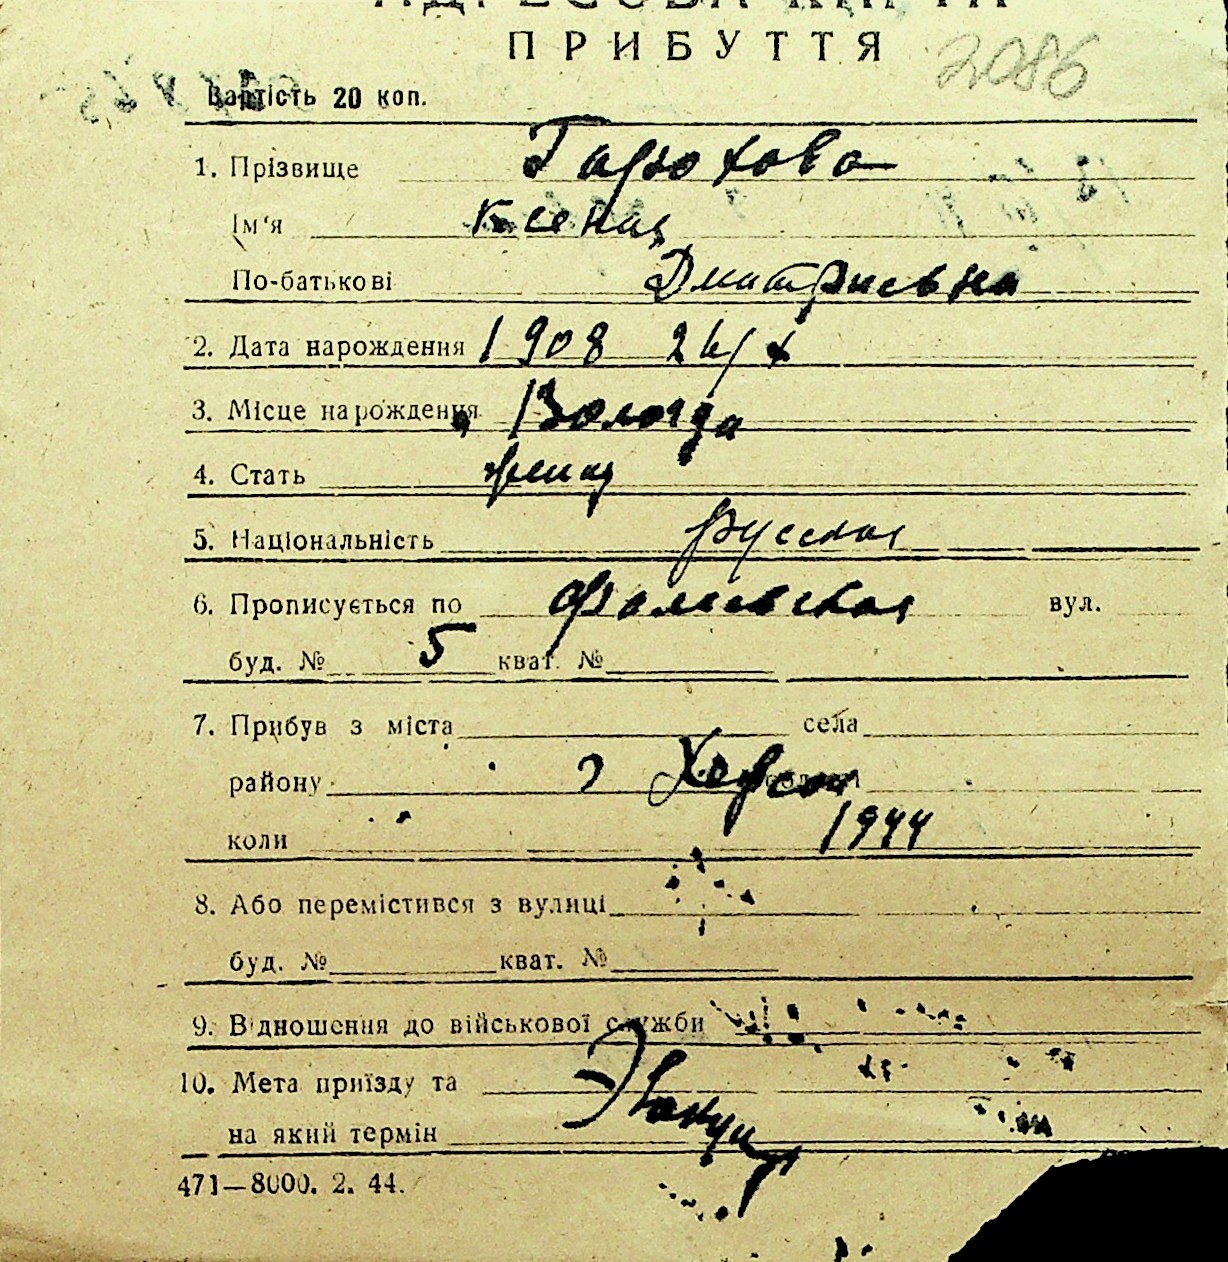 АДРЕСОВА КАРТА
ПРИБУТТЯ
2086
Вартість 20 коп.
1. Прізвище Гарюхова
Ім'я Ксения
По-батькові Дмитриевна
2. Дата народження 1908 24/X
3. Місце народження Вологда
4. Стать женщ
5. Національність русская
6. Прописується по вул.
буд. № 5 кват. №
7. Прибув з міста села
району г Херсон
коли 1944
8. Або перемістився з вулиці
буд. № кват. №
9. Відношення до військової служби
10. Мета приїзду та
на який термін Эвакуир
471—8000. 2. 44.